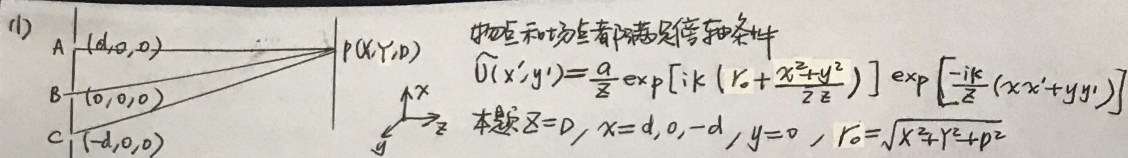 (1)
A (d,0,0)
B (0,0,0)
C (-d,0,0)
P(X,Y,D)
x
z
y
物点和场点都满足傍轴条件
Ũ(x′,y′)=a/z exp[ik(r₀+(x²+y²)/2z)] exp[-ik/z(xx′+yy′)]
本题Z=D, x=d,0,-d, y=0, r₀=√(X²+Y²+D²)